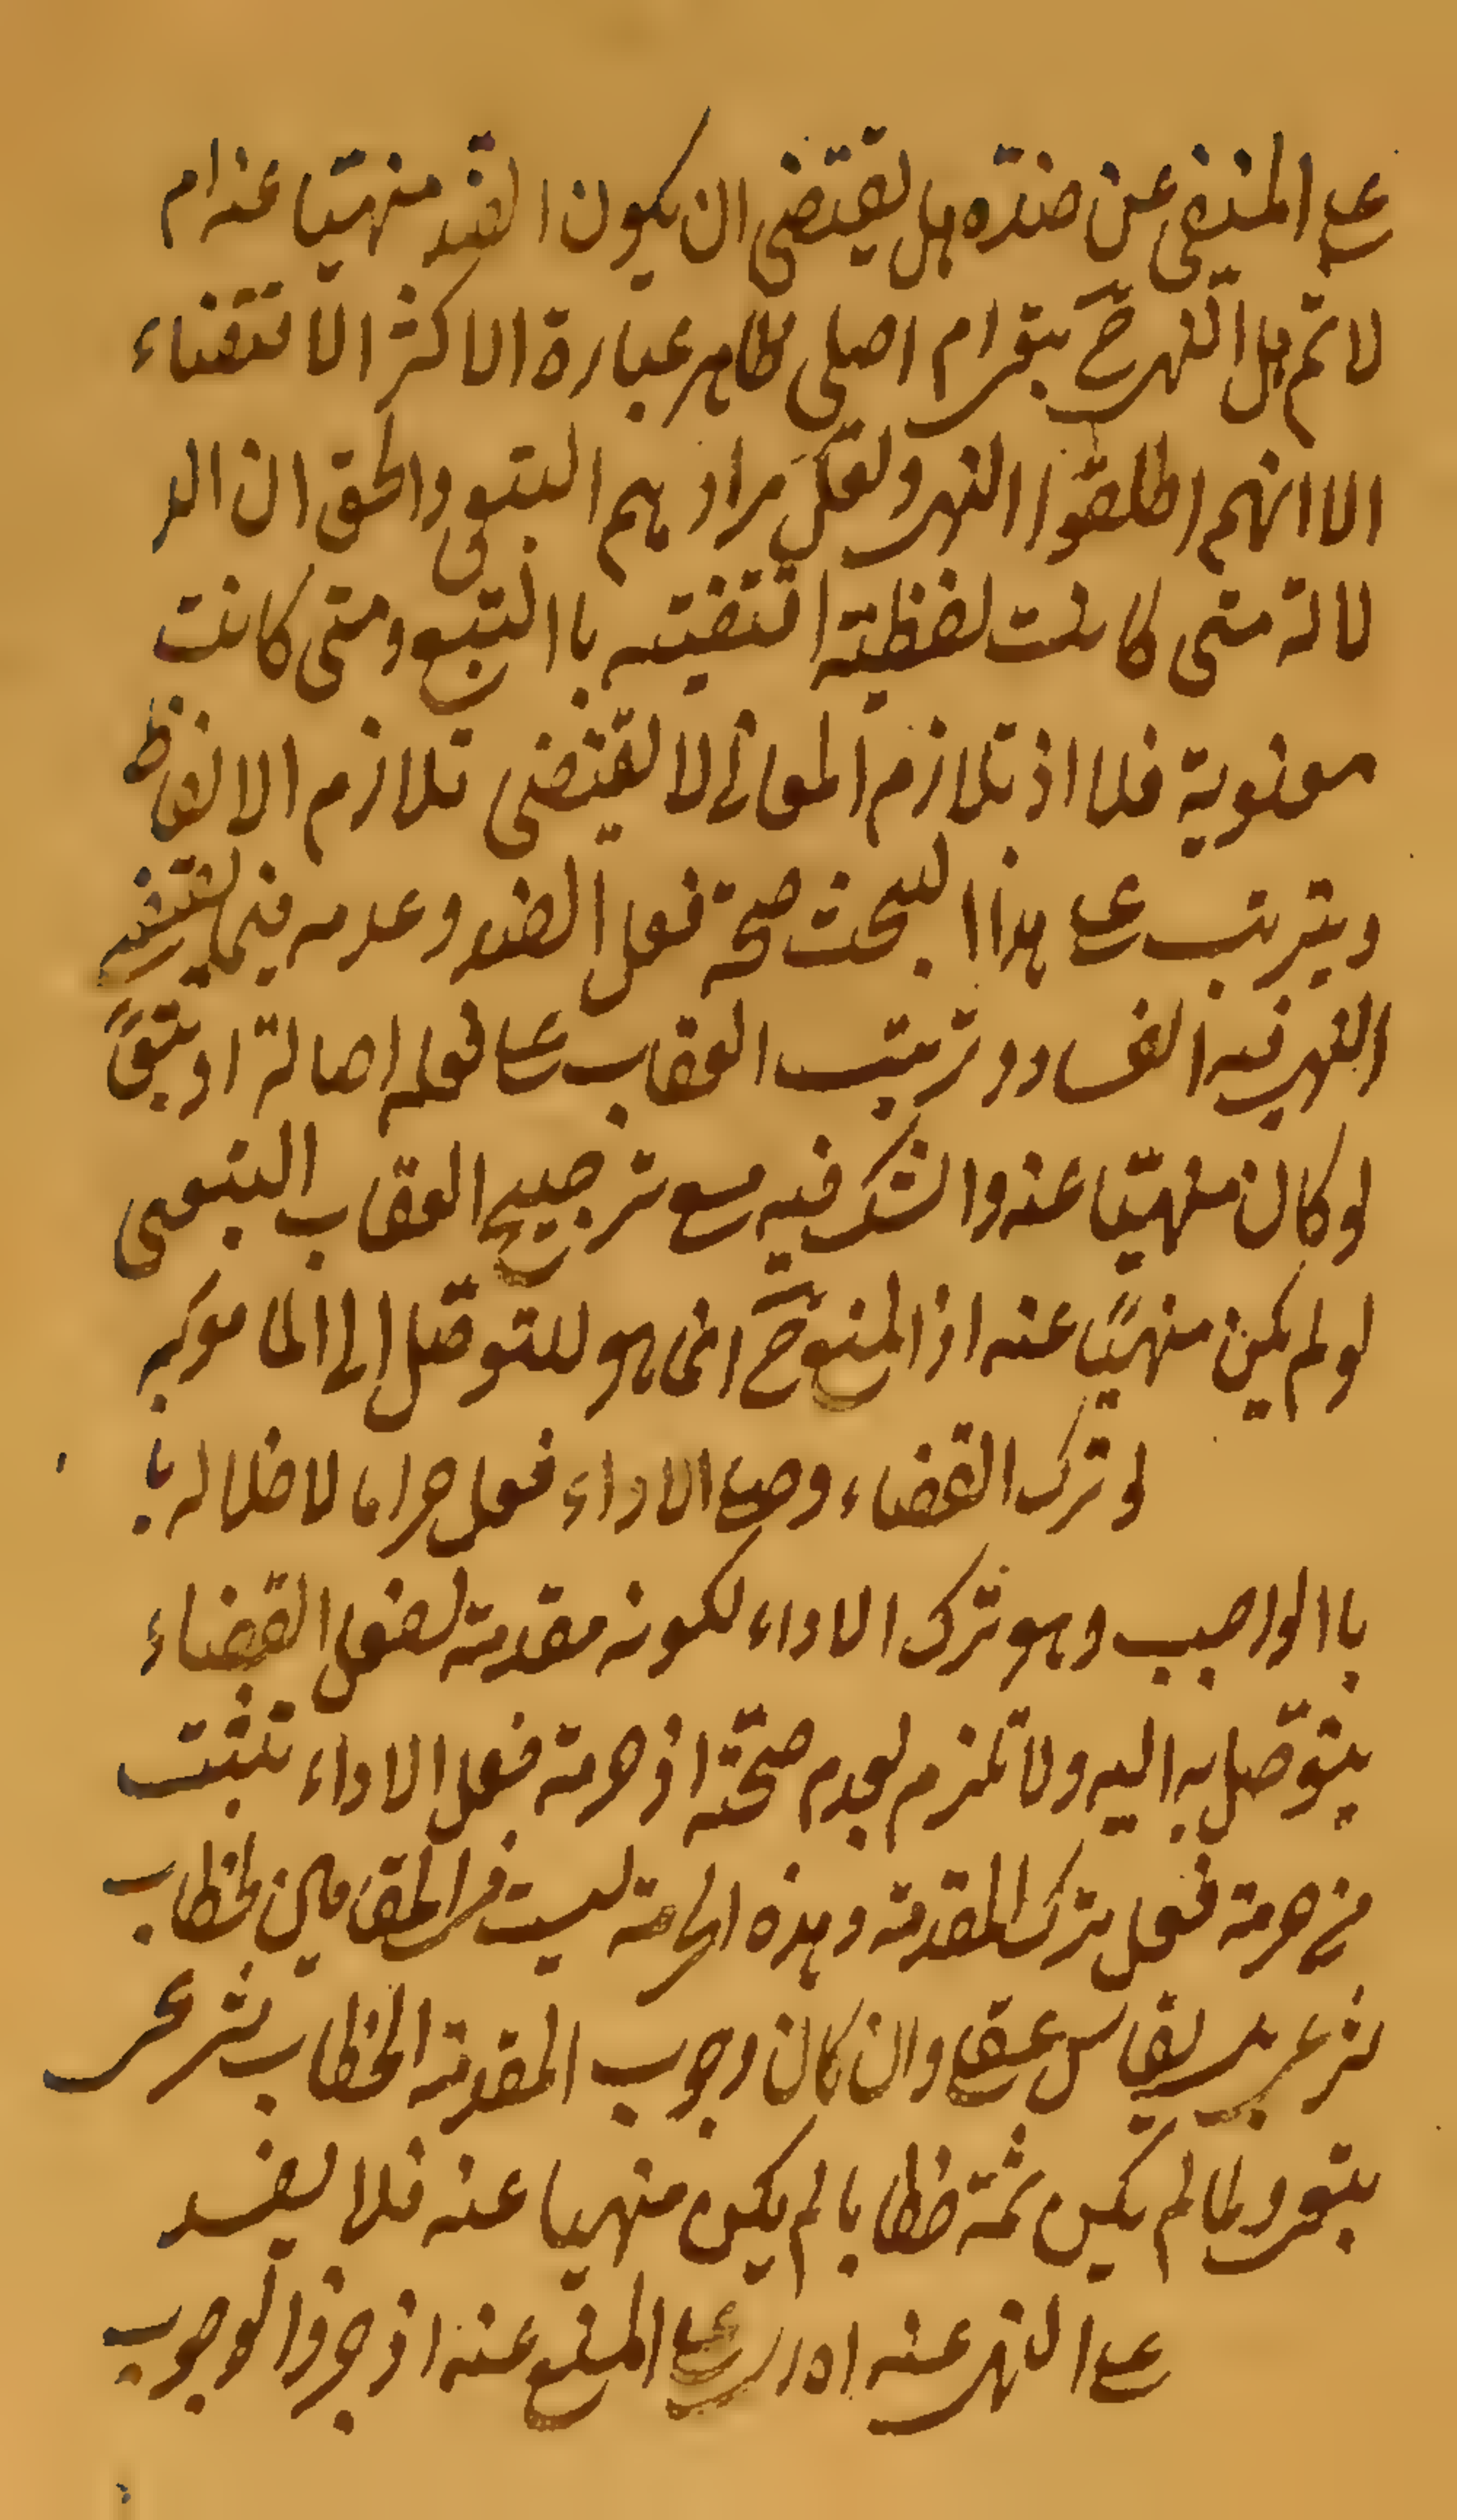 على المنفى عن ضدّه هل يقتضى ان يكون الضد منهيّا عنه ام
لا ثم هل النهى حَ بتبعى ام اصلى ظاهر عبارة الاكثر الاقتضاء
الا انهم اطلقوا النهى ولعلّ مرادهم التبعى والحق ان الد
لالة متى كانت لفظيّة اقتضيته باالتبع ومتى كانت
معنوية فلا اذ تلازم المعانى لا يقتضى تلازم الالفاظ
ويترتب على هذا البحث صحة فعل الضد وعدمه فيما يقتضى
النهى فيه الفساد وترتب العقاب على فعله اصالة او تبعًا
لو كان منهيّا عنه والشك فيه مع ترجيح العقاب التبعى
لو لم يكن منهيًا عنه اذ المنع حَ انما هو للتوصّل الى المامور به
لو ترك القضاء وصلى الاداء فعل حراما لاخلاله با
باالواجب وهو ترك الاداء لكونه مقدمة لفعل القضاء
يتوصّل به اليه ولا تلزم لعدم صحّته اذ حرمة فعل الاداء تثبت
من حرمة فعل ترك المقدمة وهذه الحرمة ليست فى المقامين لخطاب
شرعى بل بقياس عقلى وان كان وجوب المقدمة الخطاب شرعى
تبعى ولما لم يكن ثمة خطابا لم يكن منهيا عنه فلا يفسد
على النهى عنه على المنع عنه اذ جوزوا الوجوب